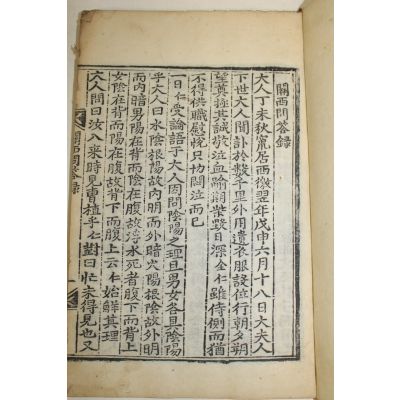 關西問答錄
大人丁未秋竄居西徼翌年戊申六月十八日大夫人
下世大人聞訃於數千里外用遺衣服設位行朝夕朔
望奠極其誠敬泣血喻期柴毁日深全仁雖侍側而猶
不得供職慰悅只切悶泣而已
一日仁受論語于大人因問陰陽之理且男女各具陰陽
乎大人曰水陰根陽故內明而外暗火陽根陰故外明
而內暗男陰在腹陽在背故浮水死者腹下而背上
女陰在背而陽在腹故背下而腹上云仁始解其理
大人問曰汝入來時見曹植乎仁對曰忙未得見也又
關西問答錄